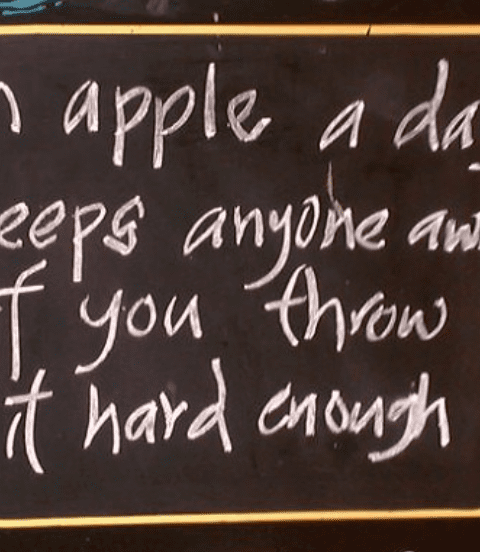 n apple a da
eeps anyone aw
f you throw
it hard enough